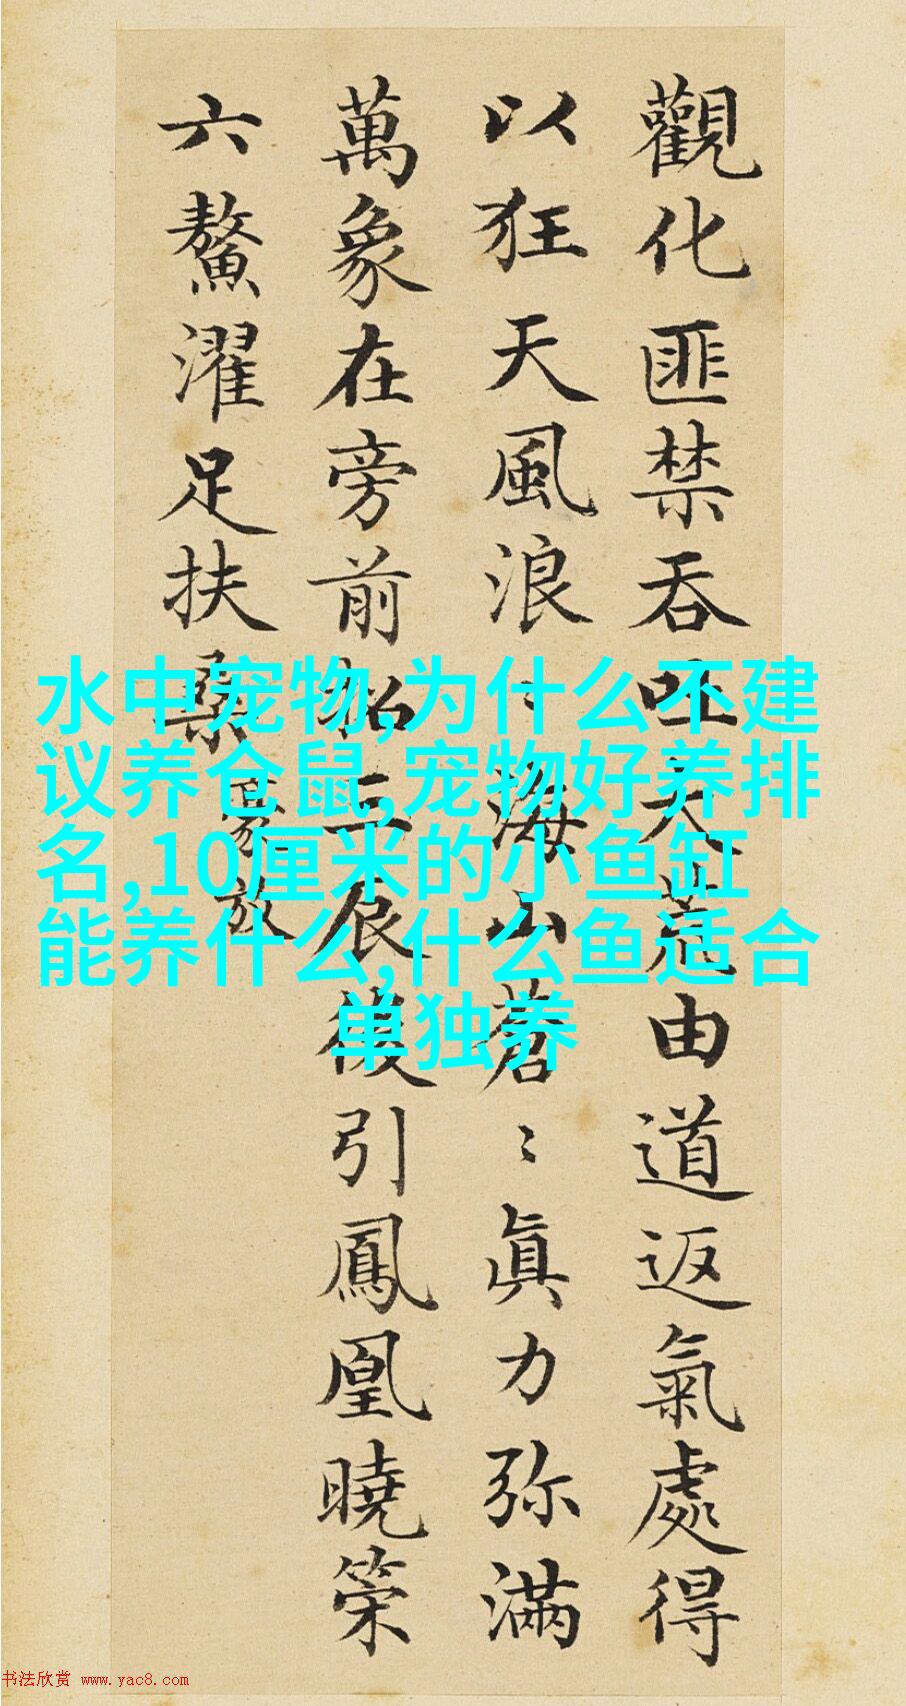 觀化匪禁吞吐大荒由道返氣處得
以狂天風浪〻海山蒼〻眞力弥滿
萬象在旁前招三辰後引鳳凰曉策
六鰲濯足扶桑
豪放
水中宠物,为什么不建
议养仓鼠,宠物好养排
名,10厘米的小鱼缸
能养什么,什么鱼适合
单独养
书法欣赏 www.yac8.com